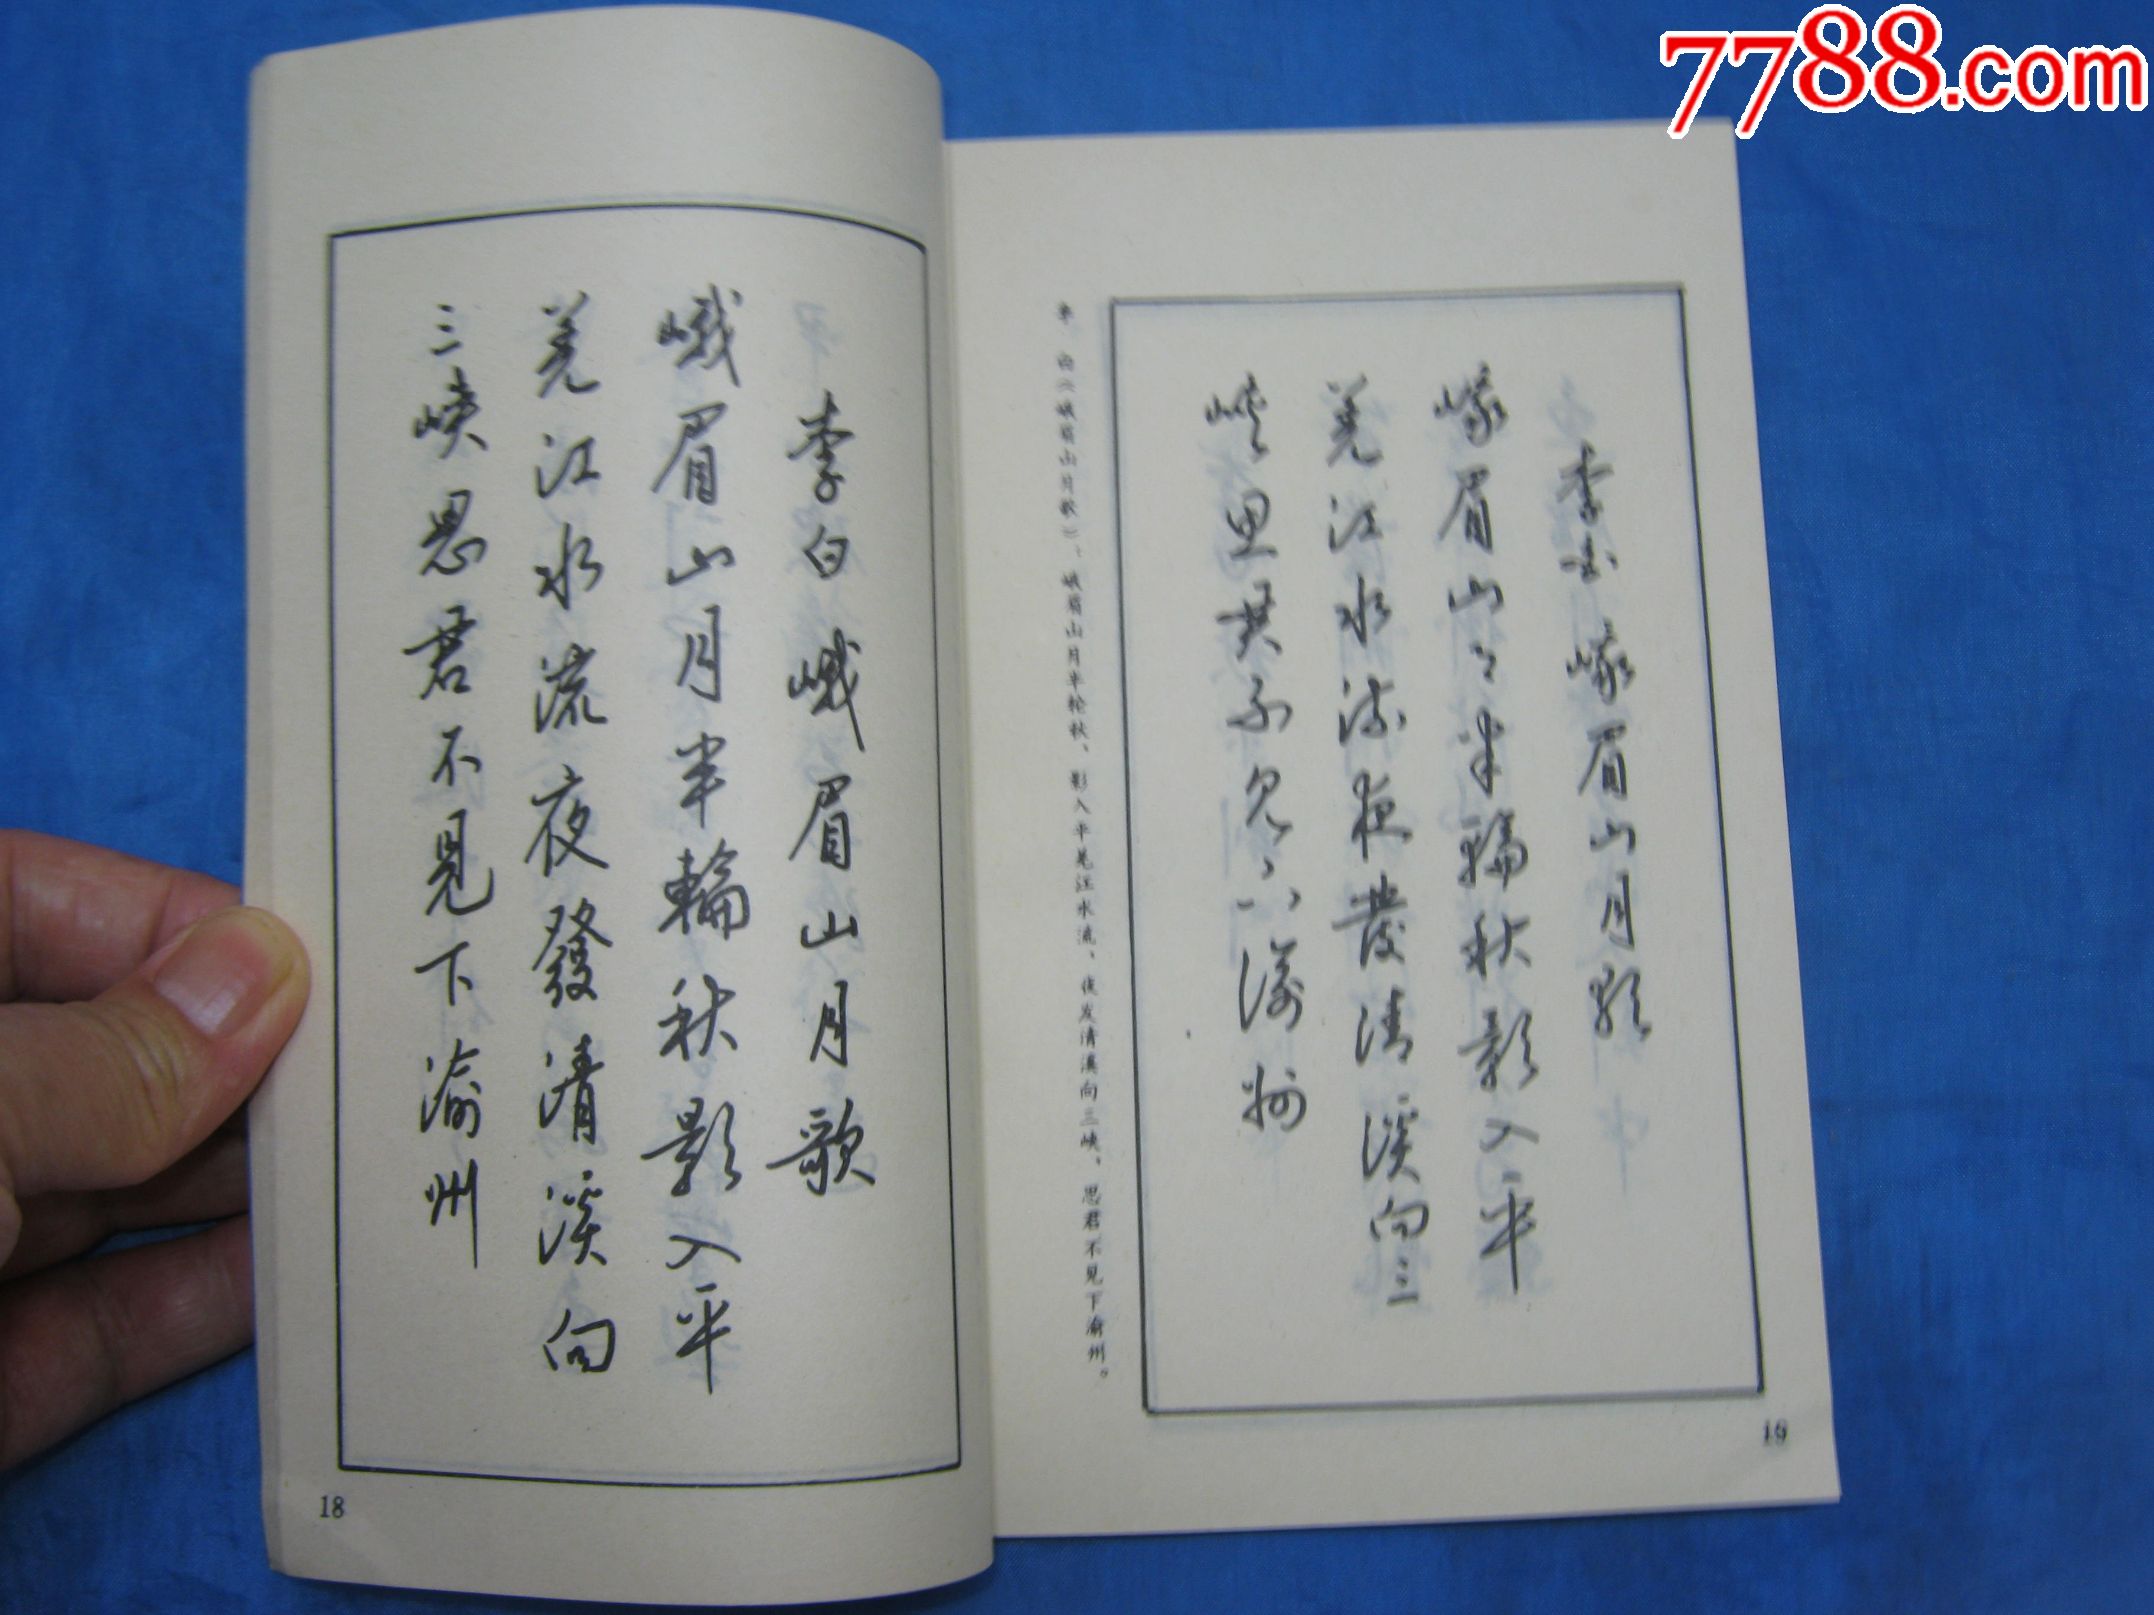 7788.com
李白峨眉山月歌
峨眉山月半輪秋影入平
羌江水流夜發清溪向
三峽思君不見下渝州
18
李白峨眉山月歌
峨眉山月半輪秋影入平
羌江水流夜發清溪向三
峽思君不見下渝州
李 白《峨眉山月歌》：峨眉山月半轮秋、影入平羌江水流、夜发清溪向三峡、思君不见下渝州。
19